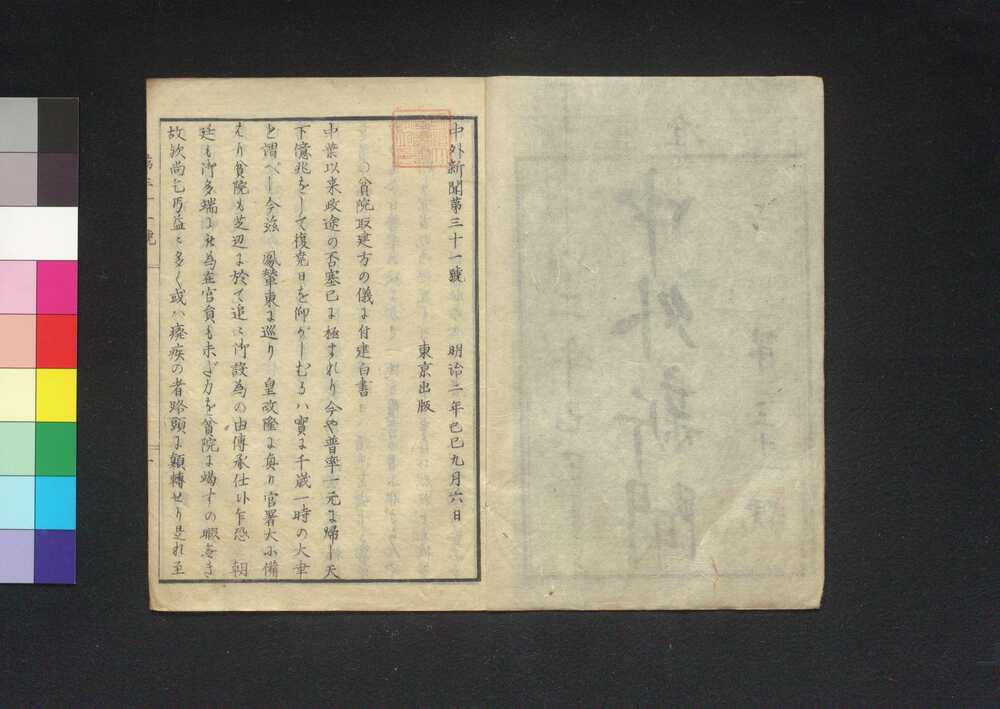 中外新聞第三十一號 明治二年己巳九月六日
東京出版
○貧院取建方の儀に付建白書
中葉以来政途の否塞已に極まれり今や普率一元に帰し天
下億兆をして復堯日を仰がしむるハ實に千歳一時の大幸
と謂べし今茲 鳳輦東に巡り 皇政隆に真り官署大に備
はり貧院も芝辺に於て追々御設為の由傳承仕候乍恐 朝
廷も御多端に 為在官員も未だ力を貧院に竭すの暇なき
故歟尚乞丐益々多く或ハ癈疾の者路頭に顛轉せり是れ至